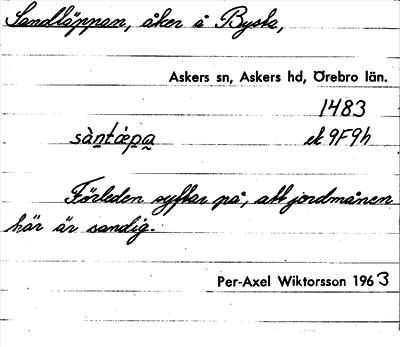 Sandläppan, åker å Bysta,
Askers sn, Askers hd, Örebro län.
1483
sàntǽpa ek 9F9h
Förleden syftar på, att jordmånen
här är sandig.
Per-Axel Wiktorsson 1963